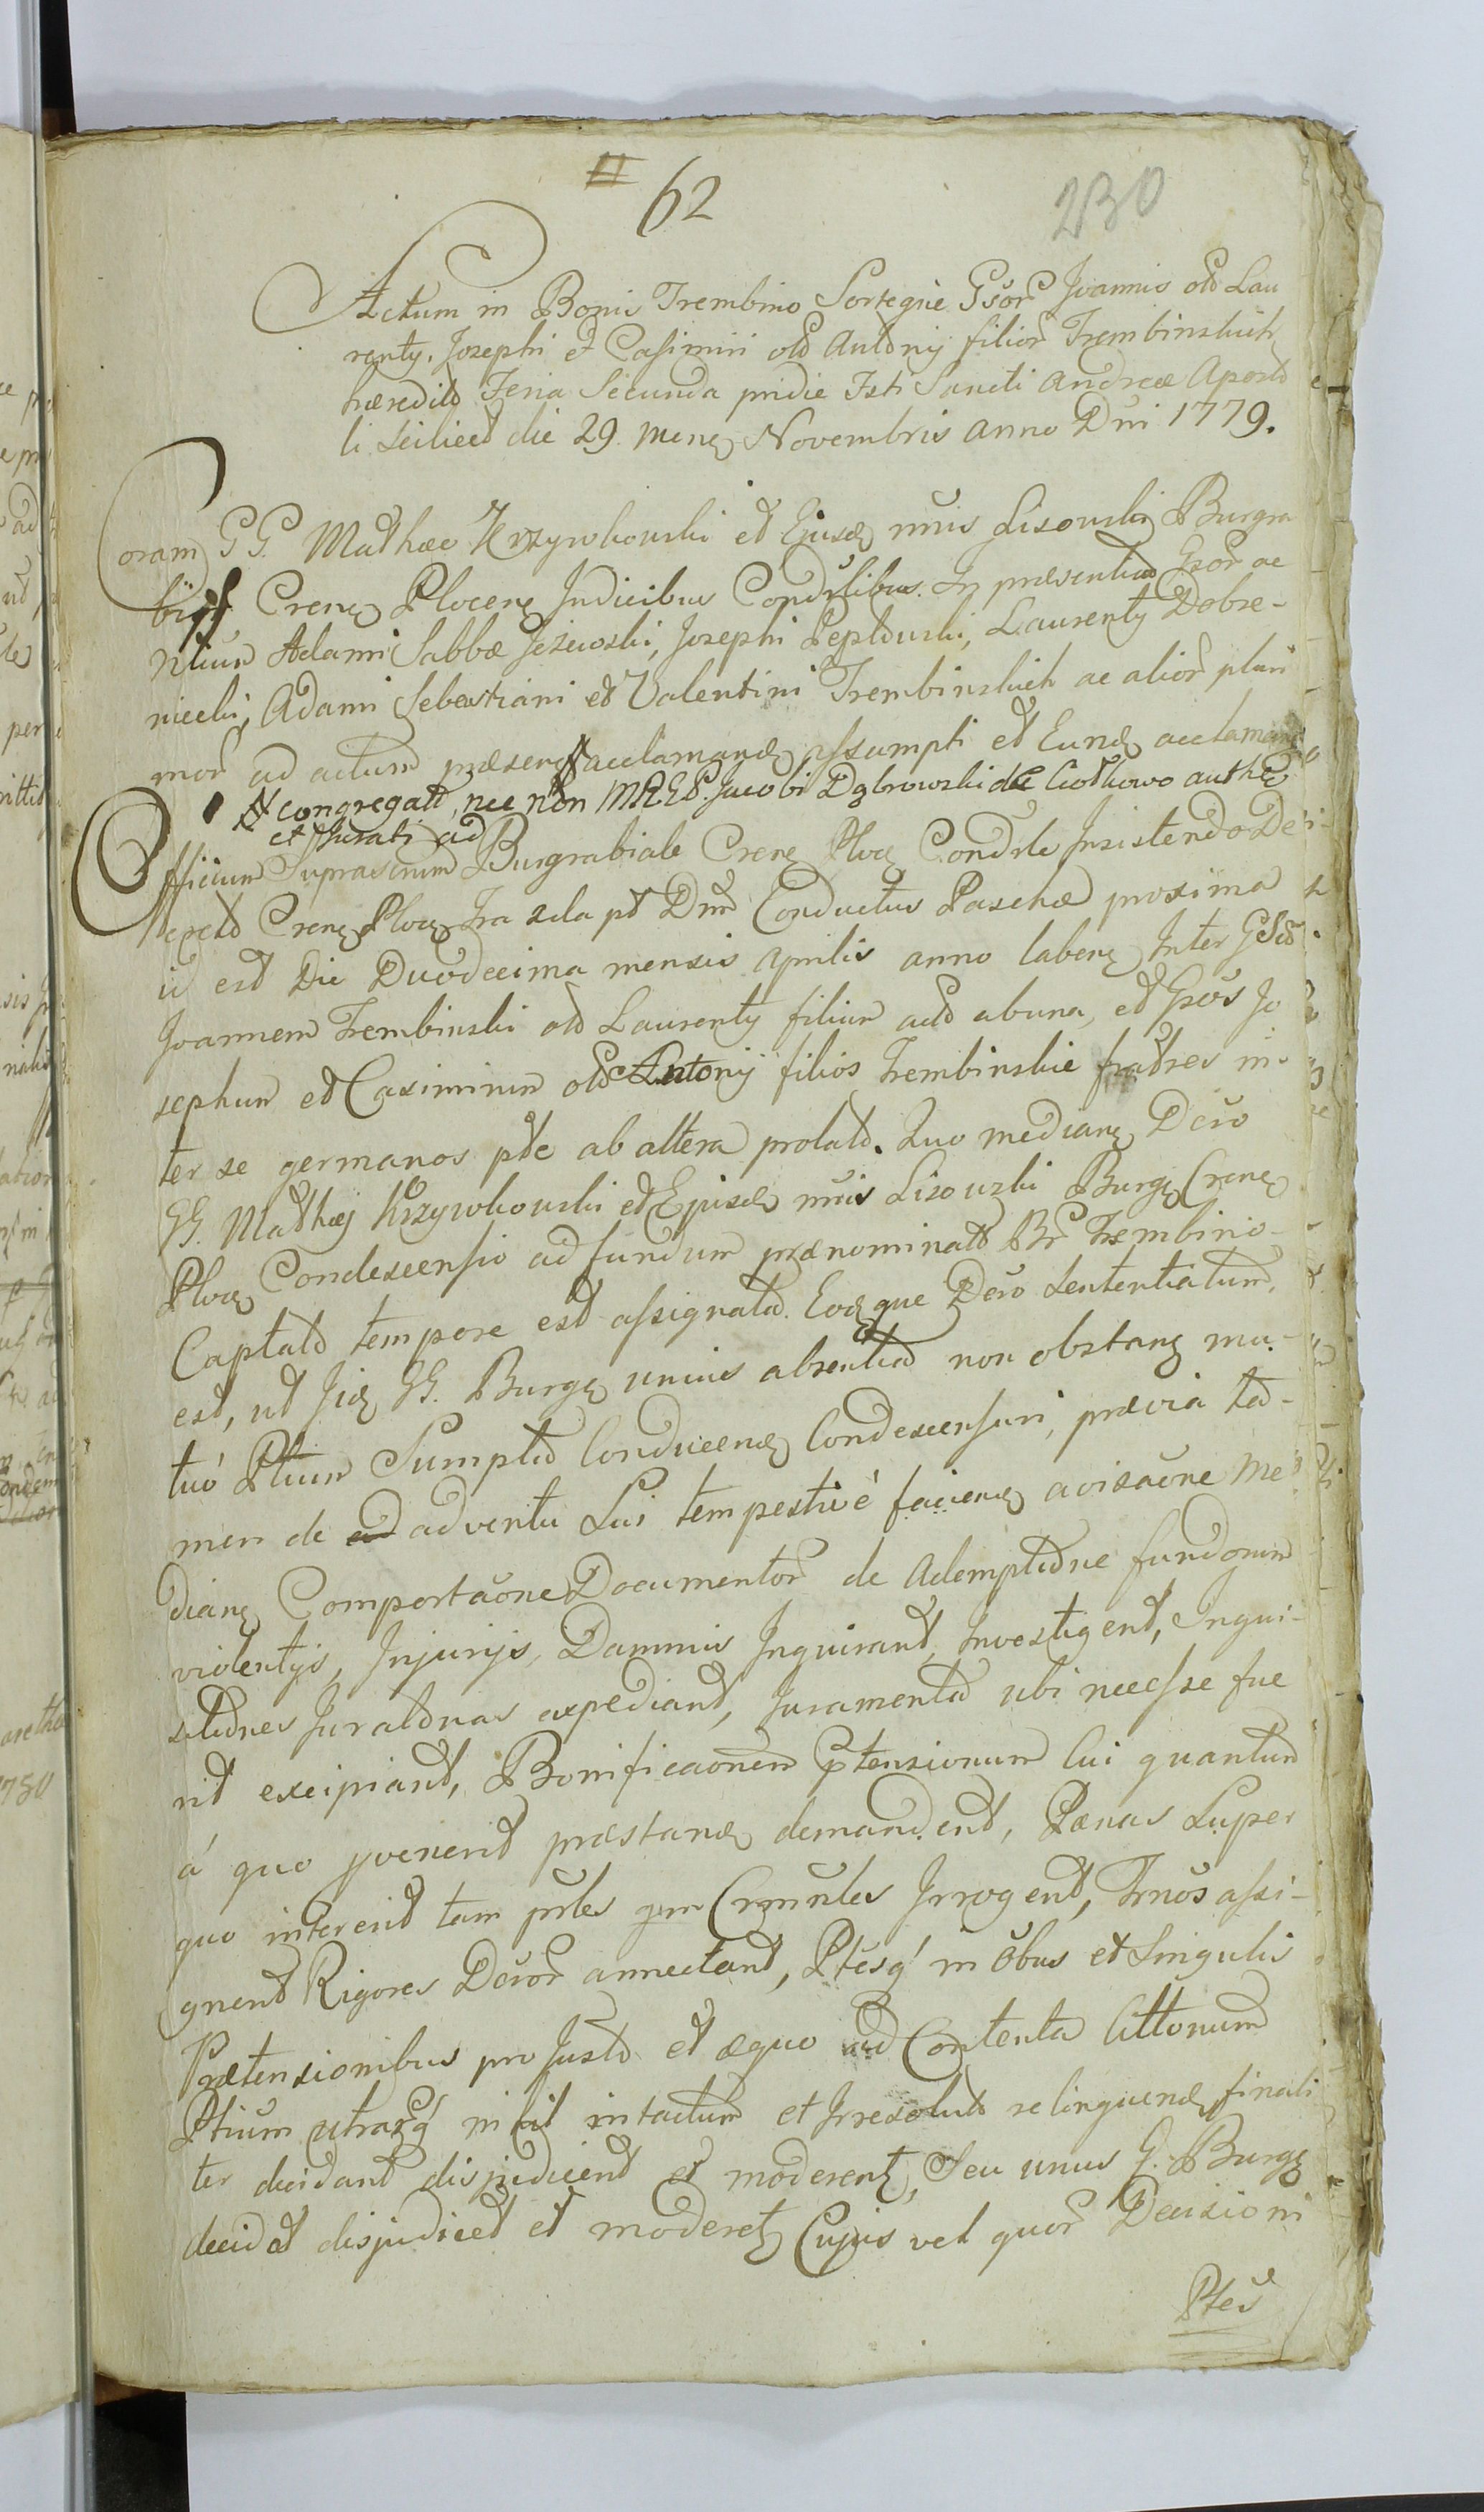 62
230
Actum in Bonis Trembino Sortegue Gsor Joannis olo Lau
renty, Josephi et Casimiri olo Antonij filior Trembinskich
hæredito Feria Secunda pridie Fsti Sancti Andreæ Aposto
li scilicet die 29. mens Novembris Anno Dni 1779.
Coram GG. Mathæo Krzywkowski et Ejusd mnis Lisowski Burgra
bijs Crens Plocens Judicibus Condrlibus. In præsentia Gsor ac
Nlium Adami Sabbæ Jeżewski, Josephi Peplowski, Laurenty Dobre-
niecki, Adami Sebastiani et Valentini Trembinskich ac alior pluri
mor ad actum præsens acclamand assumpti et Eund acclamand
congregat, nec non MREP. Jacobi Dąbrowski de Ciołkowo auth
et Jurati ad
Officium Suprascrum Burgrabiale Crens Ploc Condrle Insistendo De
creto Crens Ploc Fra 2da pt Dnm Conductus Paschæ proxima
id est Die Duodecima mensis Aprilis anno labens Inter GSum
Joannem Trembinski olo Laurenty filium acto abuna, et Gsos Jo
sephum et Casimirum olo Antonij filios Trembinskie fratres in-
ter se germanos pte ab altera prolato. Quo medians Dcro
GG. Mathæj Krzywkowski et Ejusd mnis Lisowski Burgs Crens
Ploc Condescensio ad fundum prænominato Br Trembino-
Captato tempore est assignata. Eodque Dcro Sententiatum
est, ut Jid GG. Burgs unius absentia non obstans mu-
tuo Ptium Sumptu Conducend Condescensuri, prævia ta-
men de ad adventu Sui tempestivè faciend avisaone Me
dians Comportaone Documentor de Ademptione fundorum
violentijs, Injurijs, Damnis Inquirant, Investigent, Inqui-
sitiones Juratorias expediant, Juramenta ubi necesse fue
rit excipiant, Bonificaonem Ptensionum Cui quantum
á quo pvenerit præstand demandent, Pœnas Super
quo intererit tam pnles qm Crmnles Irrogent, Trnos assi-
gnent Rigores Dcror annectant, Ptesq́ in Obus et Singulis
Prætensionibus pro Justo et æquo ad Contenta Cittonum
Ptium utrarq́ nihil intactum et Irresoluto relinquend finali
ter decidant disjudicent et moderent, Seu unus G. Burgs
decidat disjudicet et moderet Cujus vel quor Decisioni
Ptes